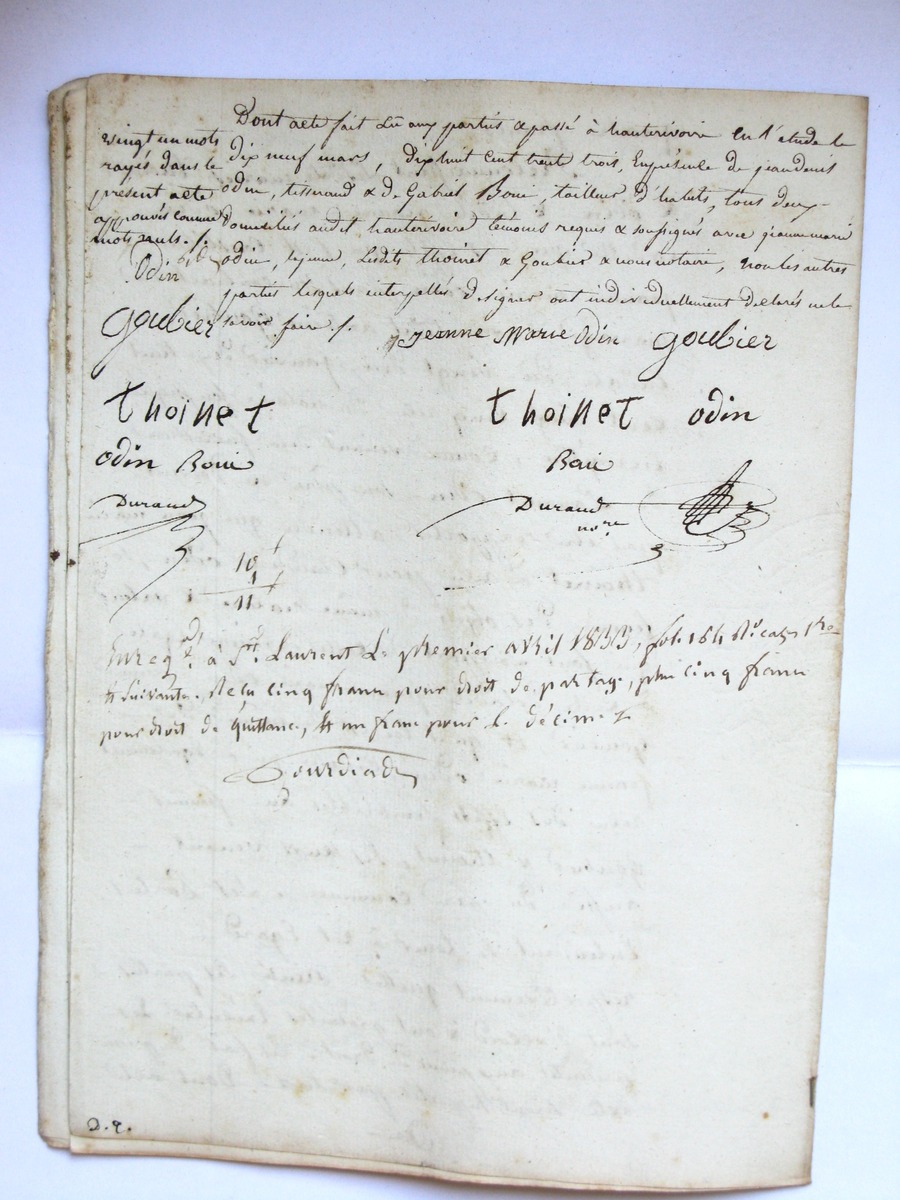 Dont acte fait lu aux parties & passé à hauterivoire en l'etude le
dix neuf mars, dix huit cent trent trois, En présence de jean denis
odin, tisserand & de Gabriel Boui, tailleur d'habits, tous deux
domiciliés audit hauterivoire témoins requis & soussignés avec jeanne marie
odin, lejeune, Lesdits thoinet & Goubier & nous notaire, non les autres
parties lesquels interpellés de signer ont individuellement déclarés ne le
savoir faire /.
vingt un mots
rayés dans le
present acte
approuvés comme
mots nuls. /.
Odin
Goubier
Jeanne Marie Odin Goubier
thoinet
thoinet odin
odin Boui
Boui
Durand
Durand
nore
10
1
11
Enregt. à St. Laurent Le premier avril 1833, fol. 164 Ro cases 1re
& suivantes. Reçu cinq francs pour droit de partage, plus cinq francs
pour droit de quittance, & un franc pour le décime
D. 9.